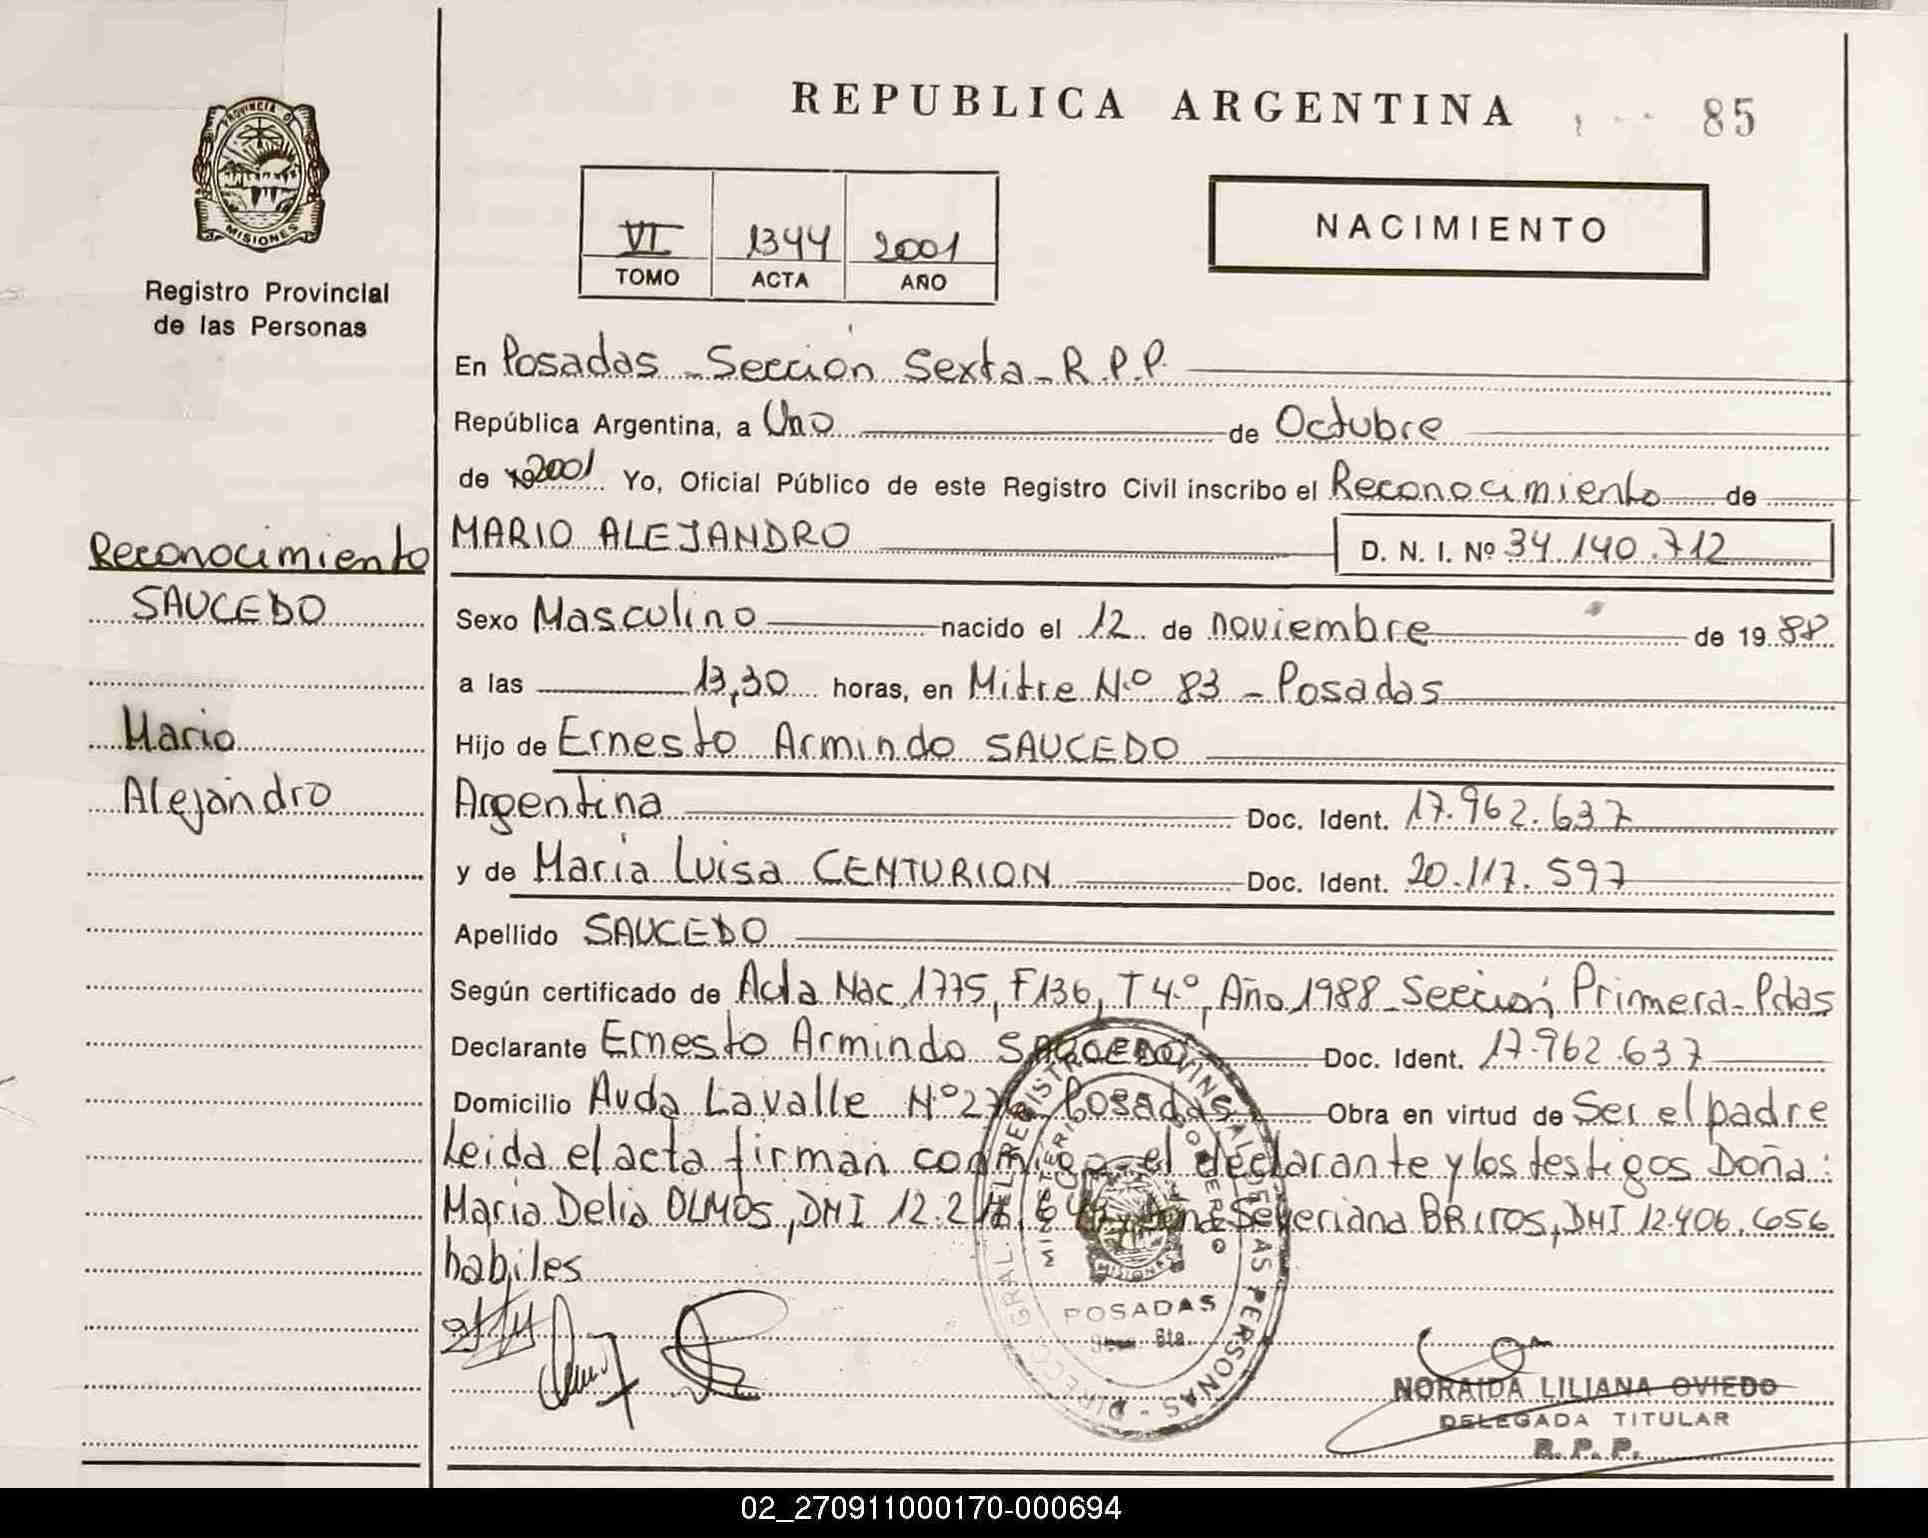 REPUBLICA ARGENTINA
85
PROVINCIA DE
MISIONES
Registro Provincial
de las Personas
VI 1344 2001
TOMO ACTA AÑO
NACIMIENTO
En Posadas - Sección Sexta - R.P.P.
República Argentina, a Uno de Octubre
de 2001 Yo, Oficial Público de este Registro Civil inscribo el Reconocimiento de
MARIO ALEJANDRO D. N. I. Nº 34.140.712
Reconocimiento
SAUCEDO
Mario
Alejandro
Sexo Masculino nacido el 12 de noviembre de 1988
a las 13,30 horas, en Mitre N.º 83 - Posadas
Hijo de Ernesto Armindo SAUCEDO
Argentina Doc. Ident. 17.962.637
y de Maria Luisa CENTURION Doc. Ident. 20.117.597
Apellido SAUCEDO
Según certificado de Acta Nac. 1775, F136, T 4.º, Año 1988 Sección Primera - Pdas
Declarante Ernesto Armindo SAUCEDO Doc. Ident. 17.962.637
Domicilio Avda Lavalle Nº Posadas Obra en virtud de Ser el padre
Leida el acta firman conmigo el declarante y los testigos Doña:
Maria Delia OLMOS, DNI Severiana BRITOS, DNI 12.406.656
habiles
POSADAS
NORAIDA LILIANA OVIEDO
DELEGADA TITULAR
R. P. P.
02_270911000170-000694